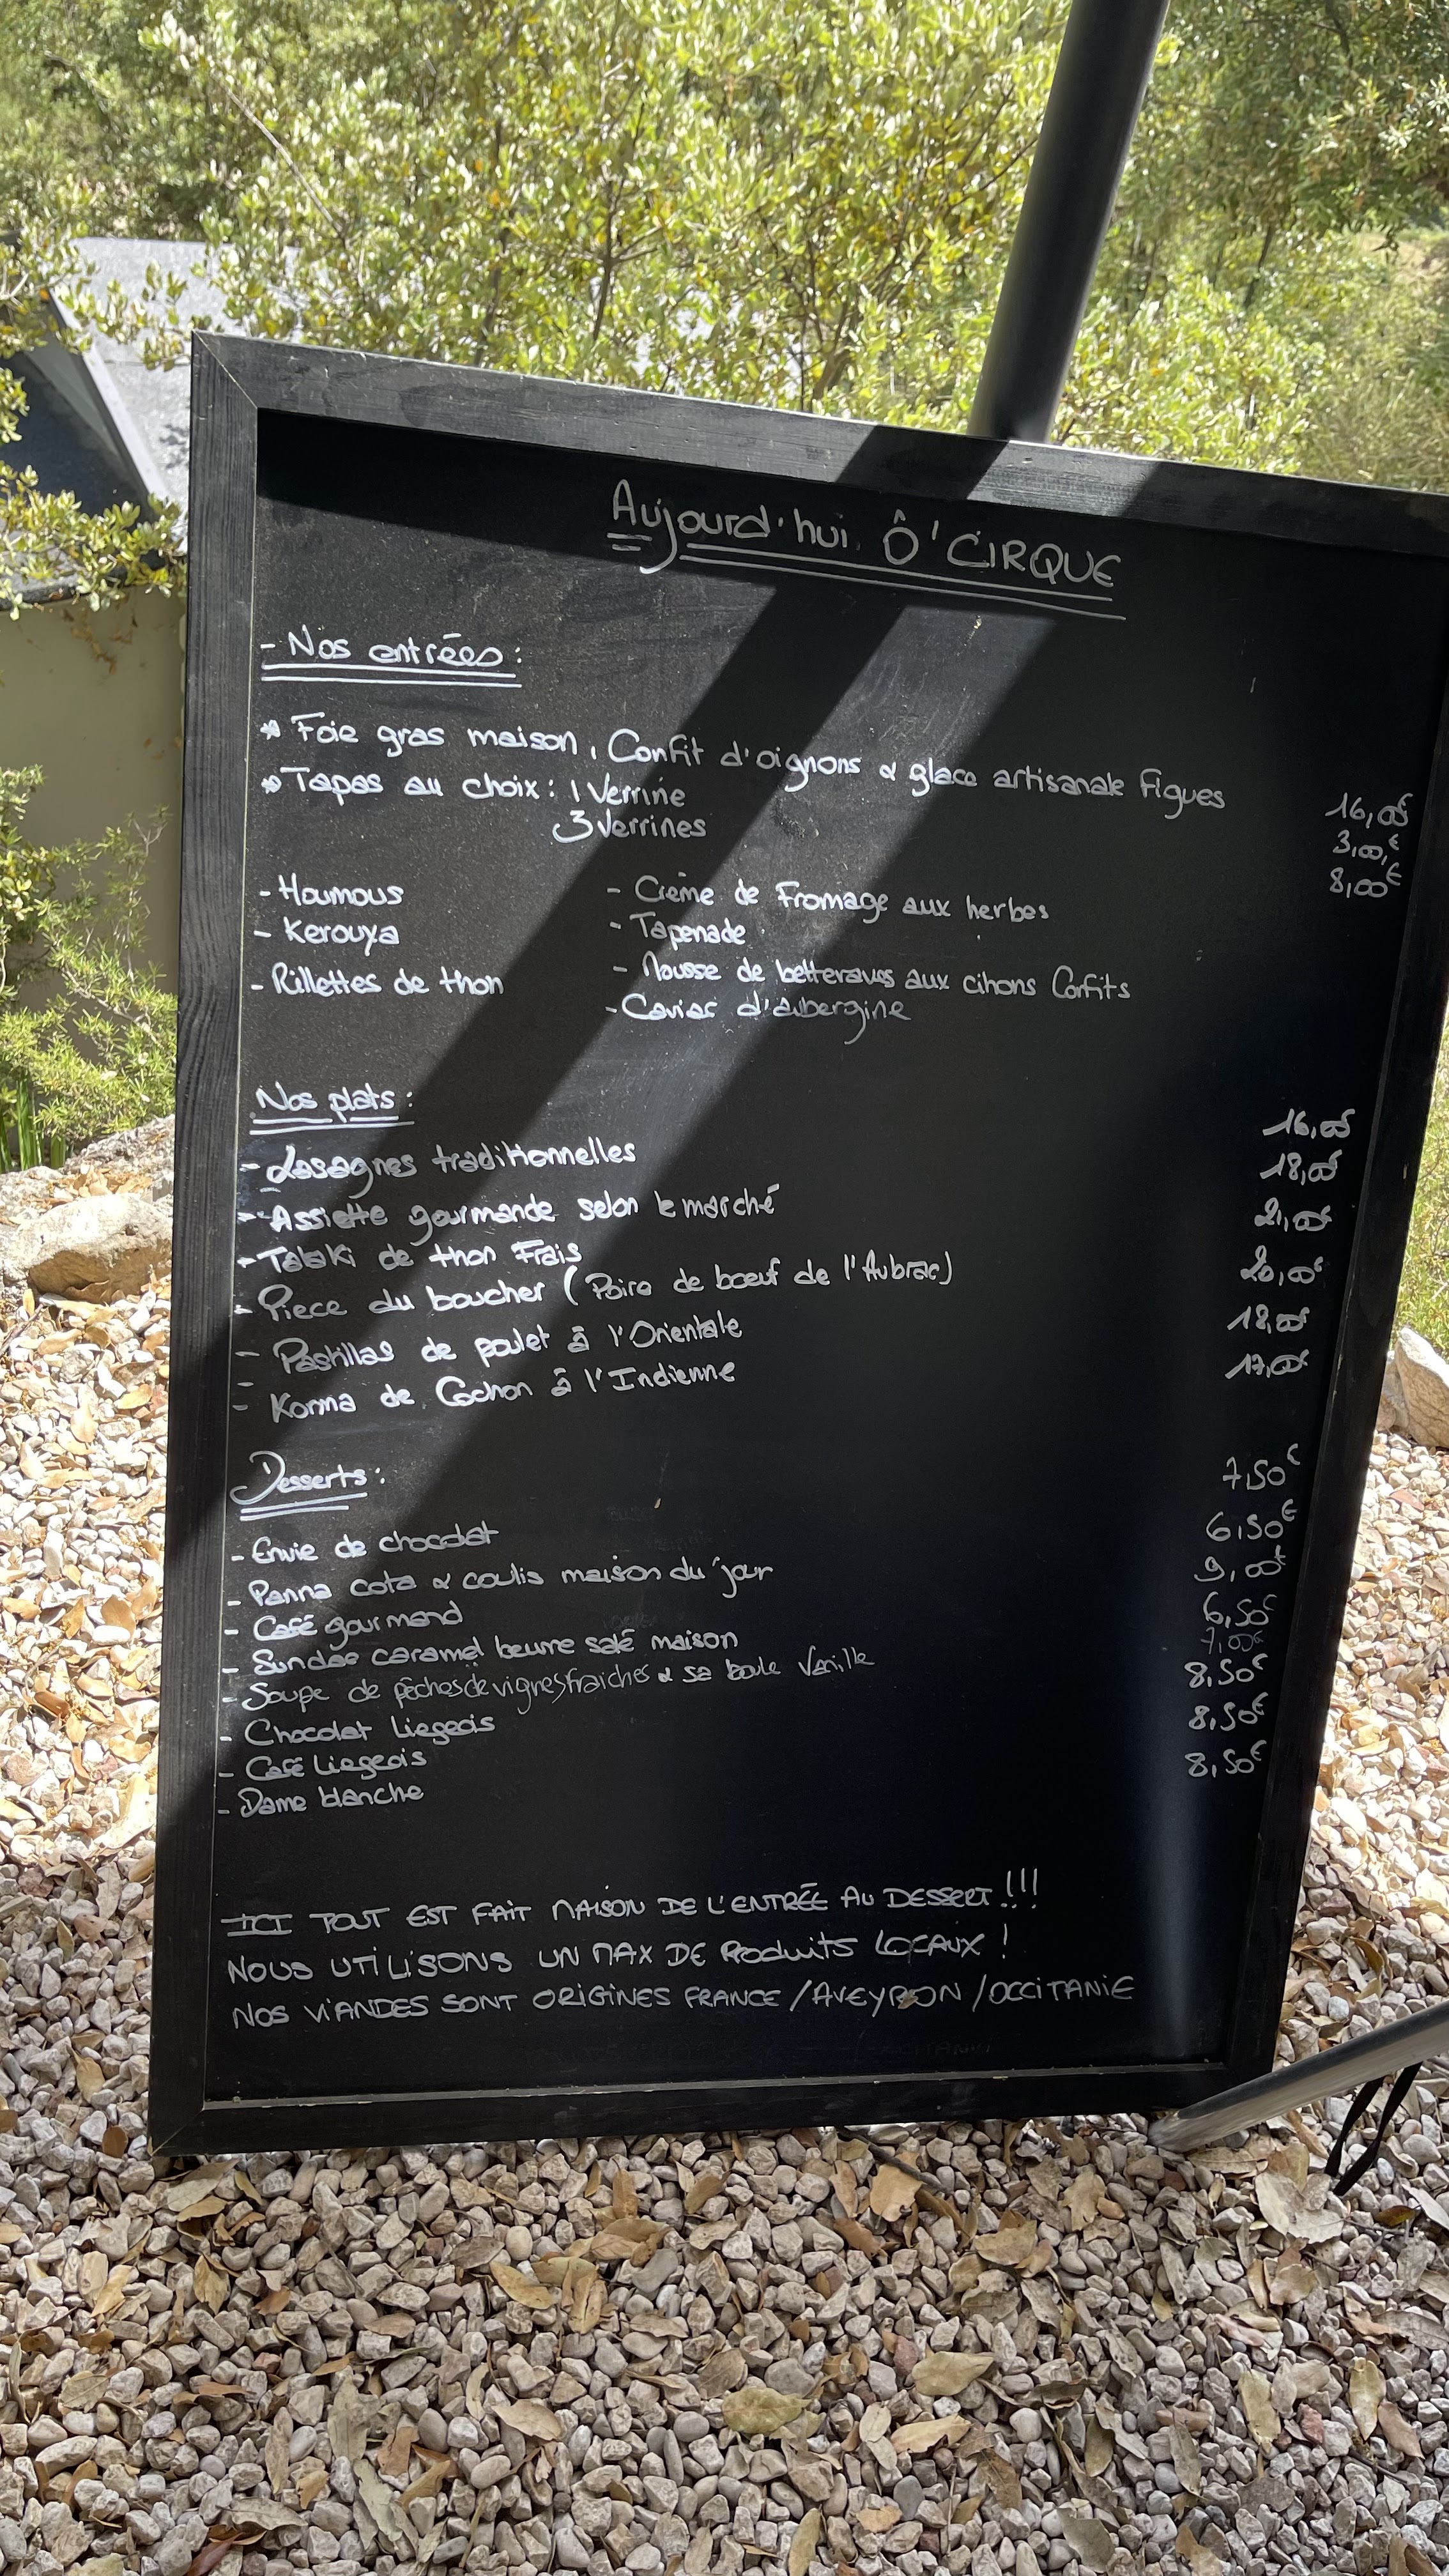 Aujourd'hui Ô'CIRQUE
- Nos entrées :
* Foie gras maison, Confit d'oignons & glace artisanale Figues 16,00€
* Tapas au choix : 1 Verrine 3,00€
3 Verrines 8,00€
- Houmous - Crème de Fromage aux herbes
- Kerouya - Tapenade
- Rillettes de thon - Mousse de betteraves aux cihons Confits
- Caviar d'aubergine
Nos plats :
- Lasagnes traditionnelles 16,00€
- Assiette gourmande selon le marché 18,00€
- Tataki de thon Frais 21,00€
- Piece du boucher (Poire de bœuf de l'Aubrac) 20,00€
- Pastillas de poulet à l'Orientale 18,00€
- Korma de Cochon à l'Indienne 17,00€
Desserts :
- Envie de chocolat 7,50€
- Panna cota & coulis maison du jour 6,50€
- Café gourmand 9,00€
- Sundae caramel beurre salé maison 6,50€
- Soupe de pêches de vignes fraiches & sa boule Vanille 7,00€
- Chocolat Liegeois 8,50€
- Café Liegeois 8,50€
- Dame blanche 8,50€
ICI TOUT EST FAIT MAISON DE L'ENTRÉE AU DESSERT !!!
NOUS UTILISONS UN MAX DE Produits LOCAUX !
NOS VIANDES SONT ORIGINES FRANCE/AVEYRON/OCCITANIE